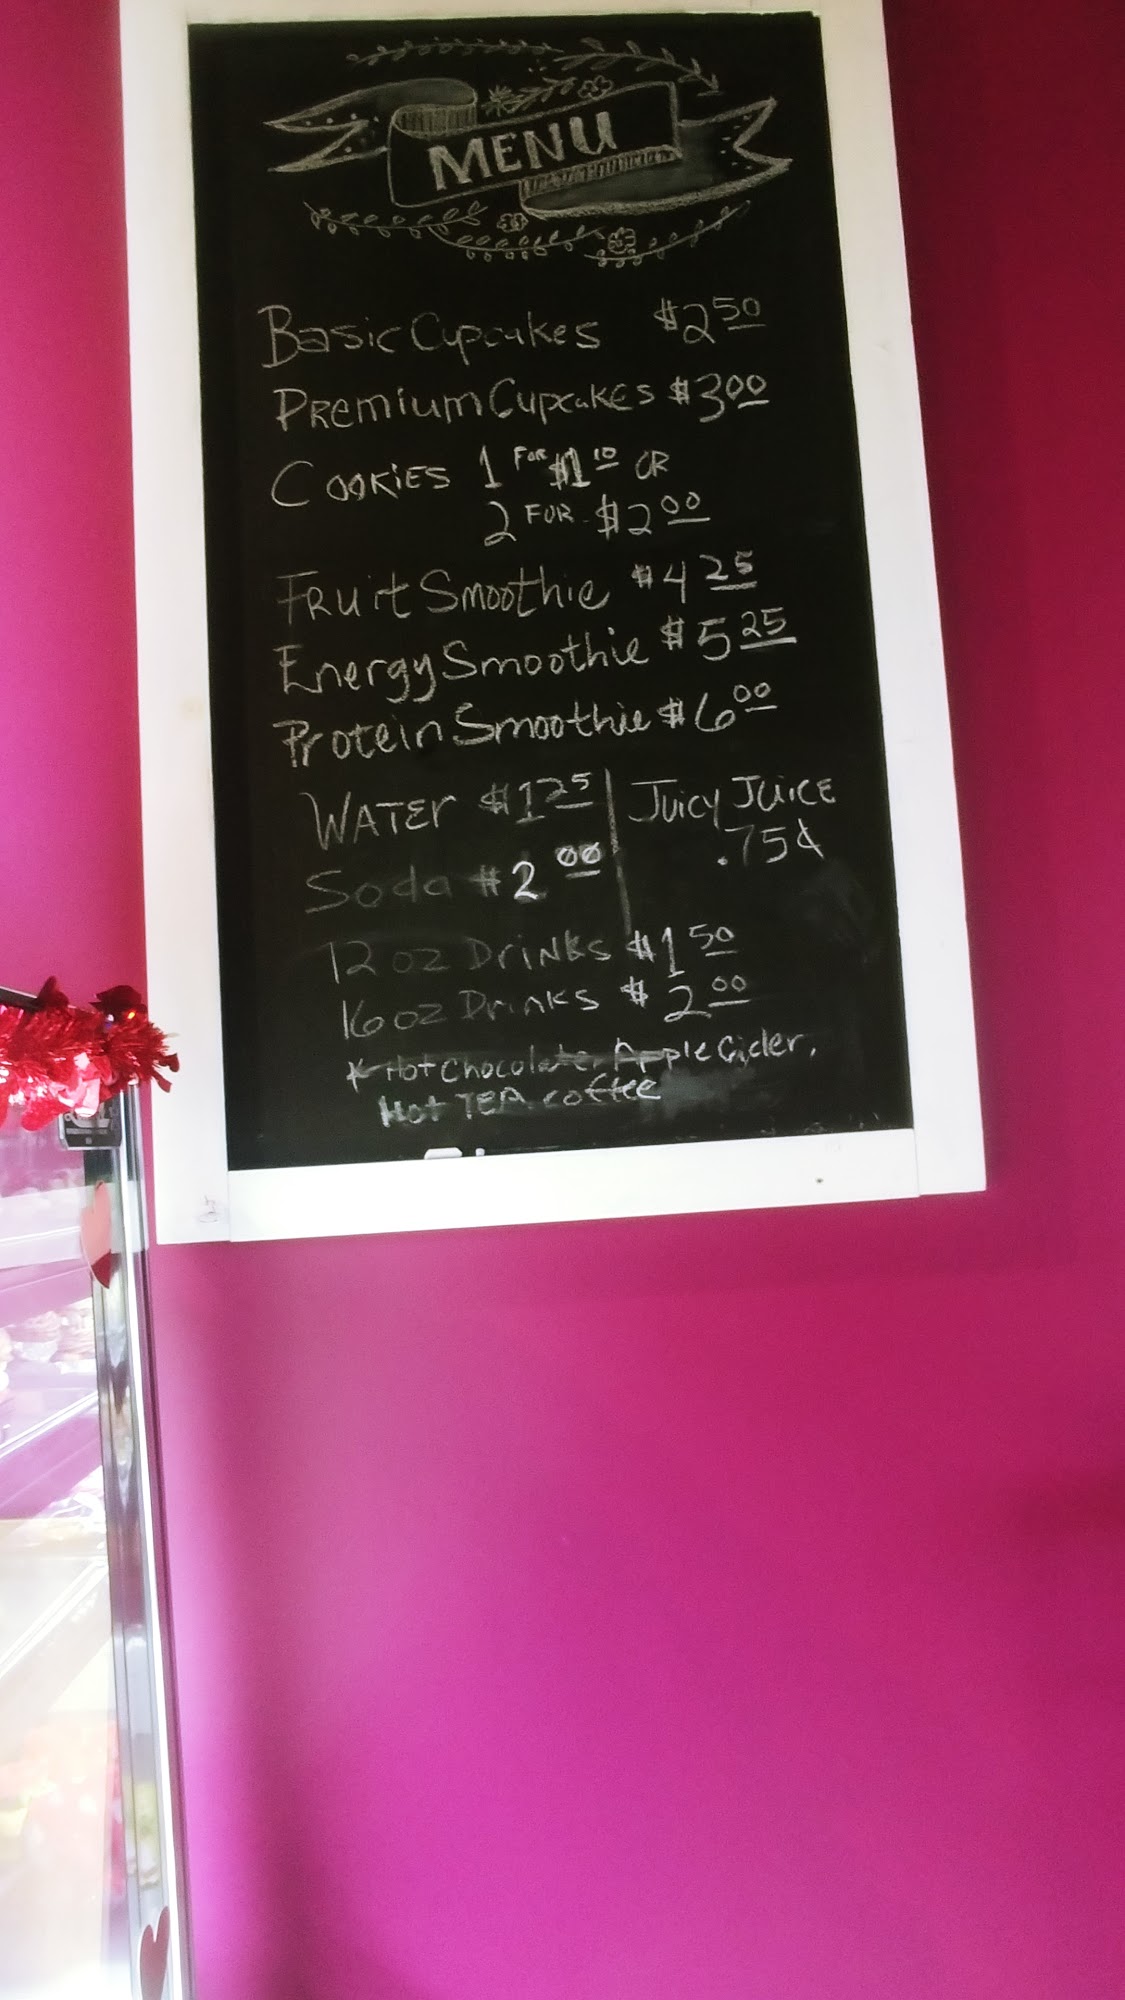 MENU
Basic Cupcakes $2 50
Premium Cupcakes $3 00
Cookies 1 FOR $1 10 OR
2 FOR $2 00
Fruit Smoothie $4 25
Energy Smoothie $5 25
Protein Smoothie $6 00
WATER $1 25
Soda $2 00
Juicy Juice
.75¢
12 oz Drinks $1 50
16 oz Drinks $2 00
* Hot Chocolate, Apple Cider,
Hot TEA. coffee